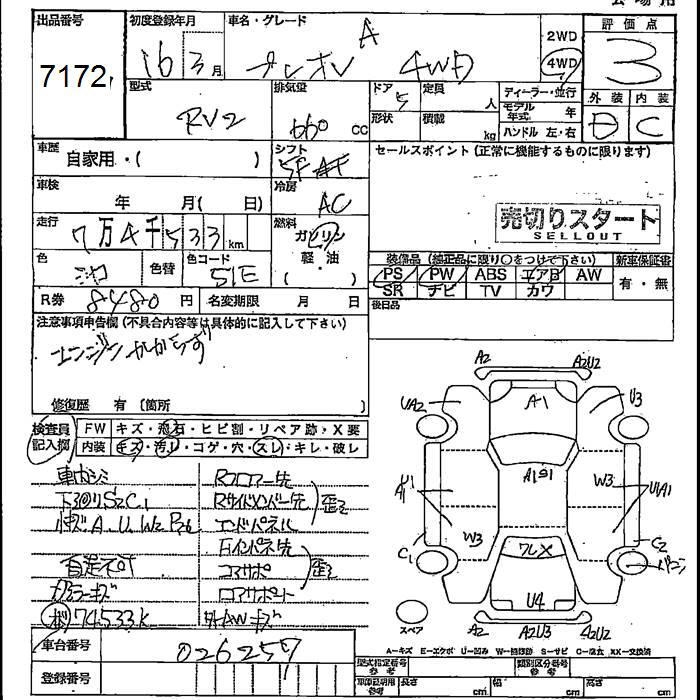 出品番号
7172
初度登録年月
16 3月
車名・グレード
プレオレ A 4WD
2WD
4WD
評価点
3
外装 内装
D C
型式
RV2
排気量
660 CC
ドア 5
形状
定員 人
積載 kg
ディーラー・並行
モデル年式 年
ハンドル 左・右
車歴
自家用・( )
シフト
5F AT
車検
年 月( 日)
冷房
AC
セールスポイント(正常に機能するものに限ります)
走行
7万4千533km
燃料
ガソリン
軽・油
( )
売切りスタート
SELLOUT
色
色替
色コード
51E
装備品(純正品に限り○をつけて下さい)
新車保証書
PS PW ABS エアB AW
有・無
SR ナビ TV カワ
R券 8480円
名変期限 月 日
後日品
注意事項申告欄(不具合内容等は具体的に記入して下さい)
エンジンかからず
修復歴 有 〔箇所 〕
検査員記入欄
FW キズ・飛石・ヒビ割・リペア跡・X要
内装 キズ・汚レ・コゲ・穴・スレ・キレ・破レ
車内シミ
下回りS2C1
小キズA.U.W2
自走不可
ドアミラーキズ
74533K
Rフロアー先
Rサイドメンバー先
エンドパネル
歪ミ
Fインパネ先
コアサポ
歪ミ
コアサポート
社外AWキズ
車台番号
026257
登録番号
A2
A2U2
UA2
A1
U3
A1
A1
W3
UA1
W3
C1
C2
フレX
U4
パンク
スペア
A2
A2U3
A2U2
A－キズ E－エクボ U－凹み W－補修跡 S－サビ C－腐食 XX－交換済
型式指定番号
参考
類別区分番号
参考
車庫証明用
参考
長さ cm
幅 cm
高さ cm